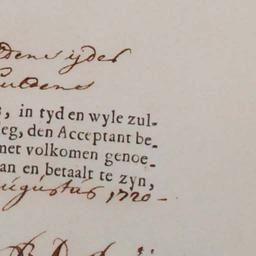 ijder
Guldens
, in tyd en wyle zul-
eg, den Acceptant be-
met volkomen genoe-
an en betaalt te zyn,
augustus 1720 -